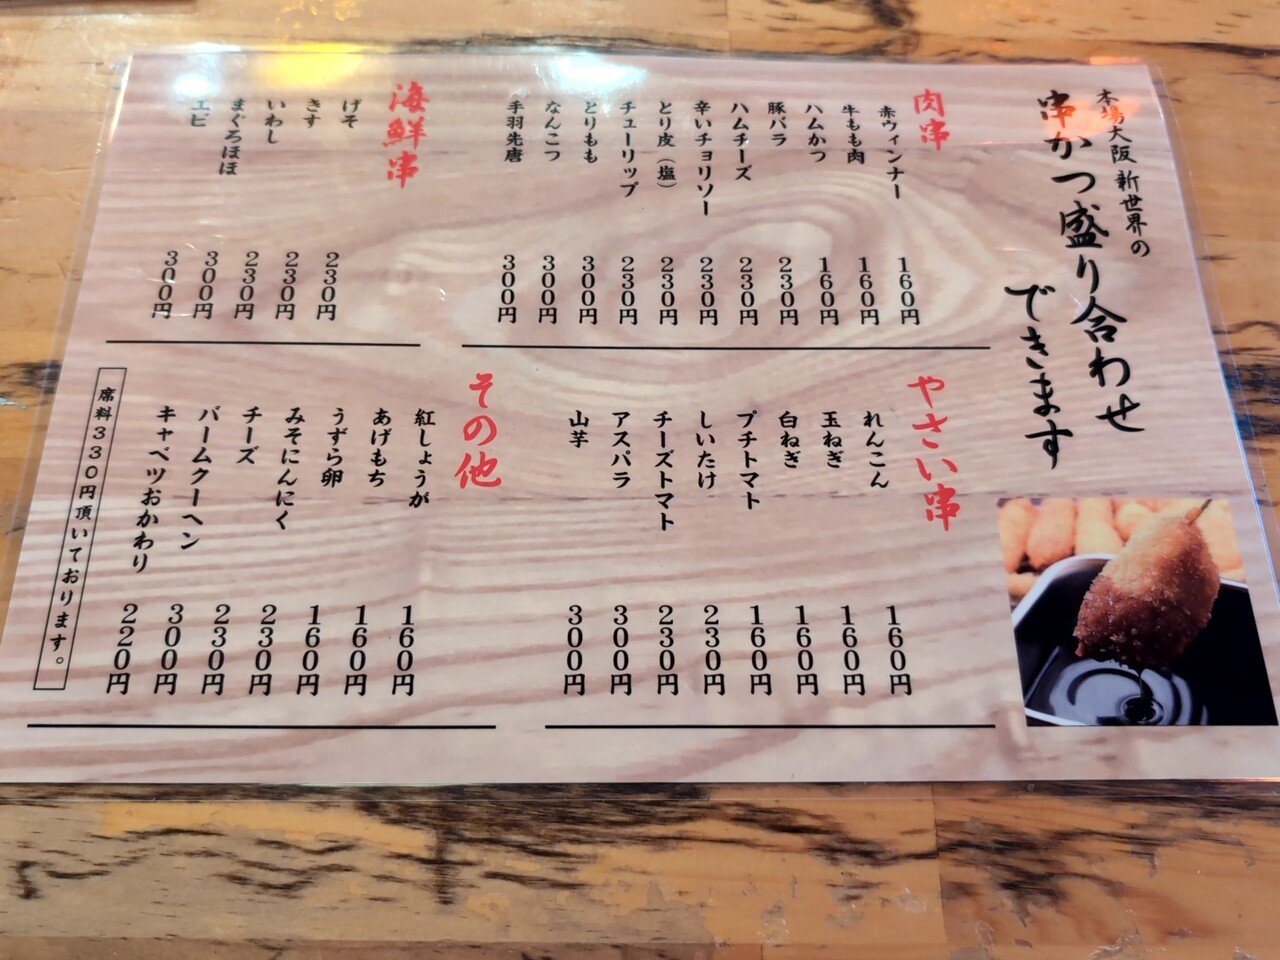 本場大阪 新世界の
串かつ盛り合わせ
できます
肉串
赤ウィンナー 160円
牛もも肉 160円
ハムかつ 160円
豚バラ 230円
ハムチーズ 230円
辛いチョリソー 230円
とり皮(塩) 230円
チューリップ 230円
とりもも 300円
なんこつ 300円
手羽先唐 300円
海鮮串
げそ 230円
きす 230円
いわし 230円
まぐろほほ 300円
エビ 300円
やさい串
れんこん 160円
玉ねぎ 160円
白ねぎ 160円
プチトマト 160円
しいたけ 230円
チーズトマト 230円
アスパラ 300円
山芋 300円
その他
紅しょうが 160円
あげもち 160円
うずら卵 160円
みそにんにく 230円
チーズ 230円
バームクーヘン 300円
キャベツおかわり 220円
席料330円頂いております。